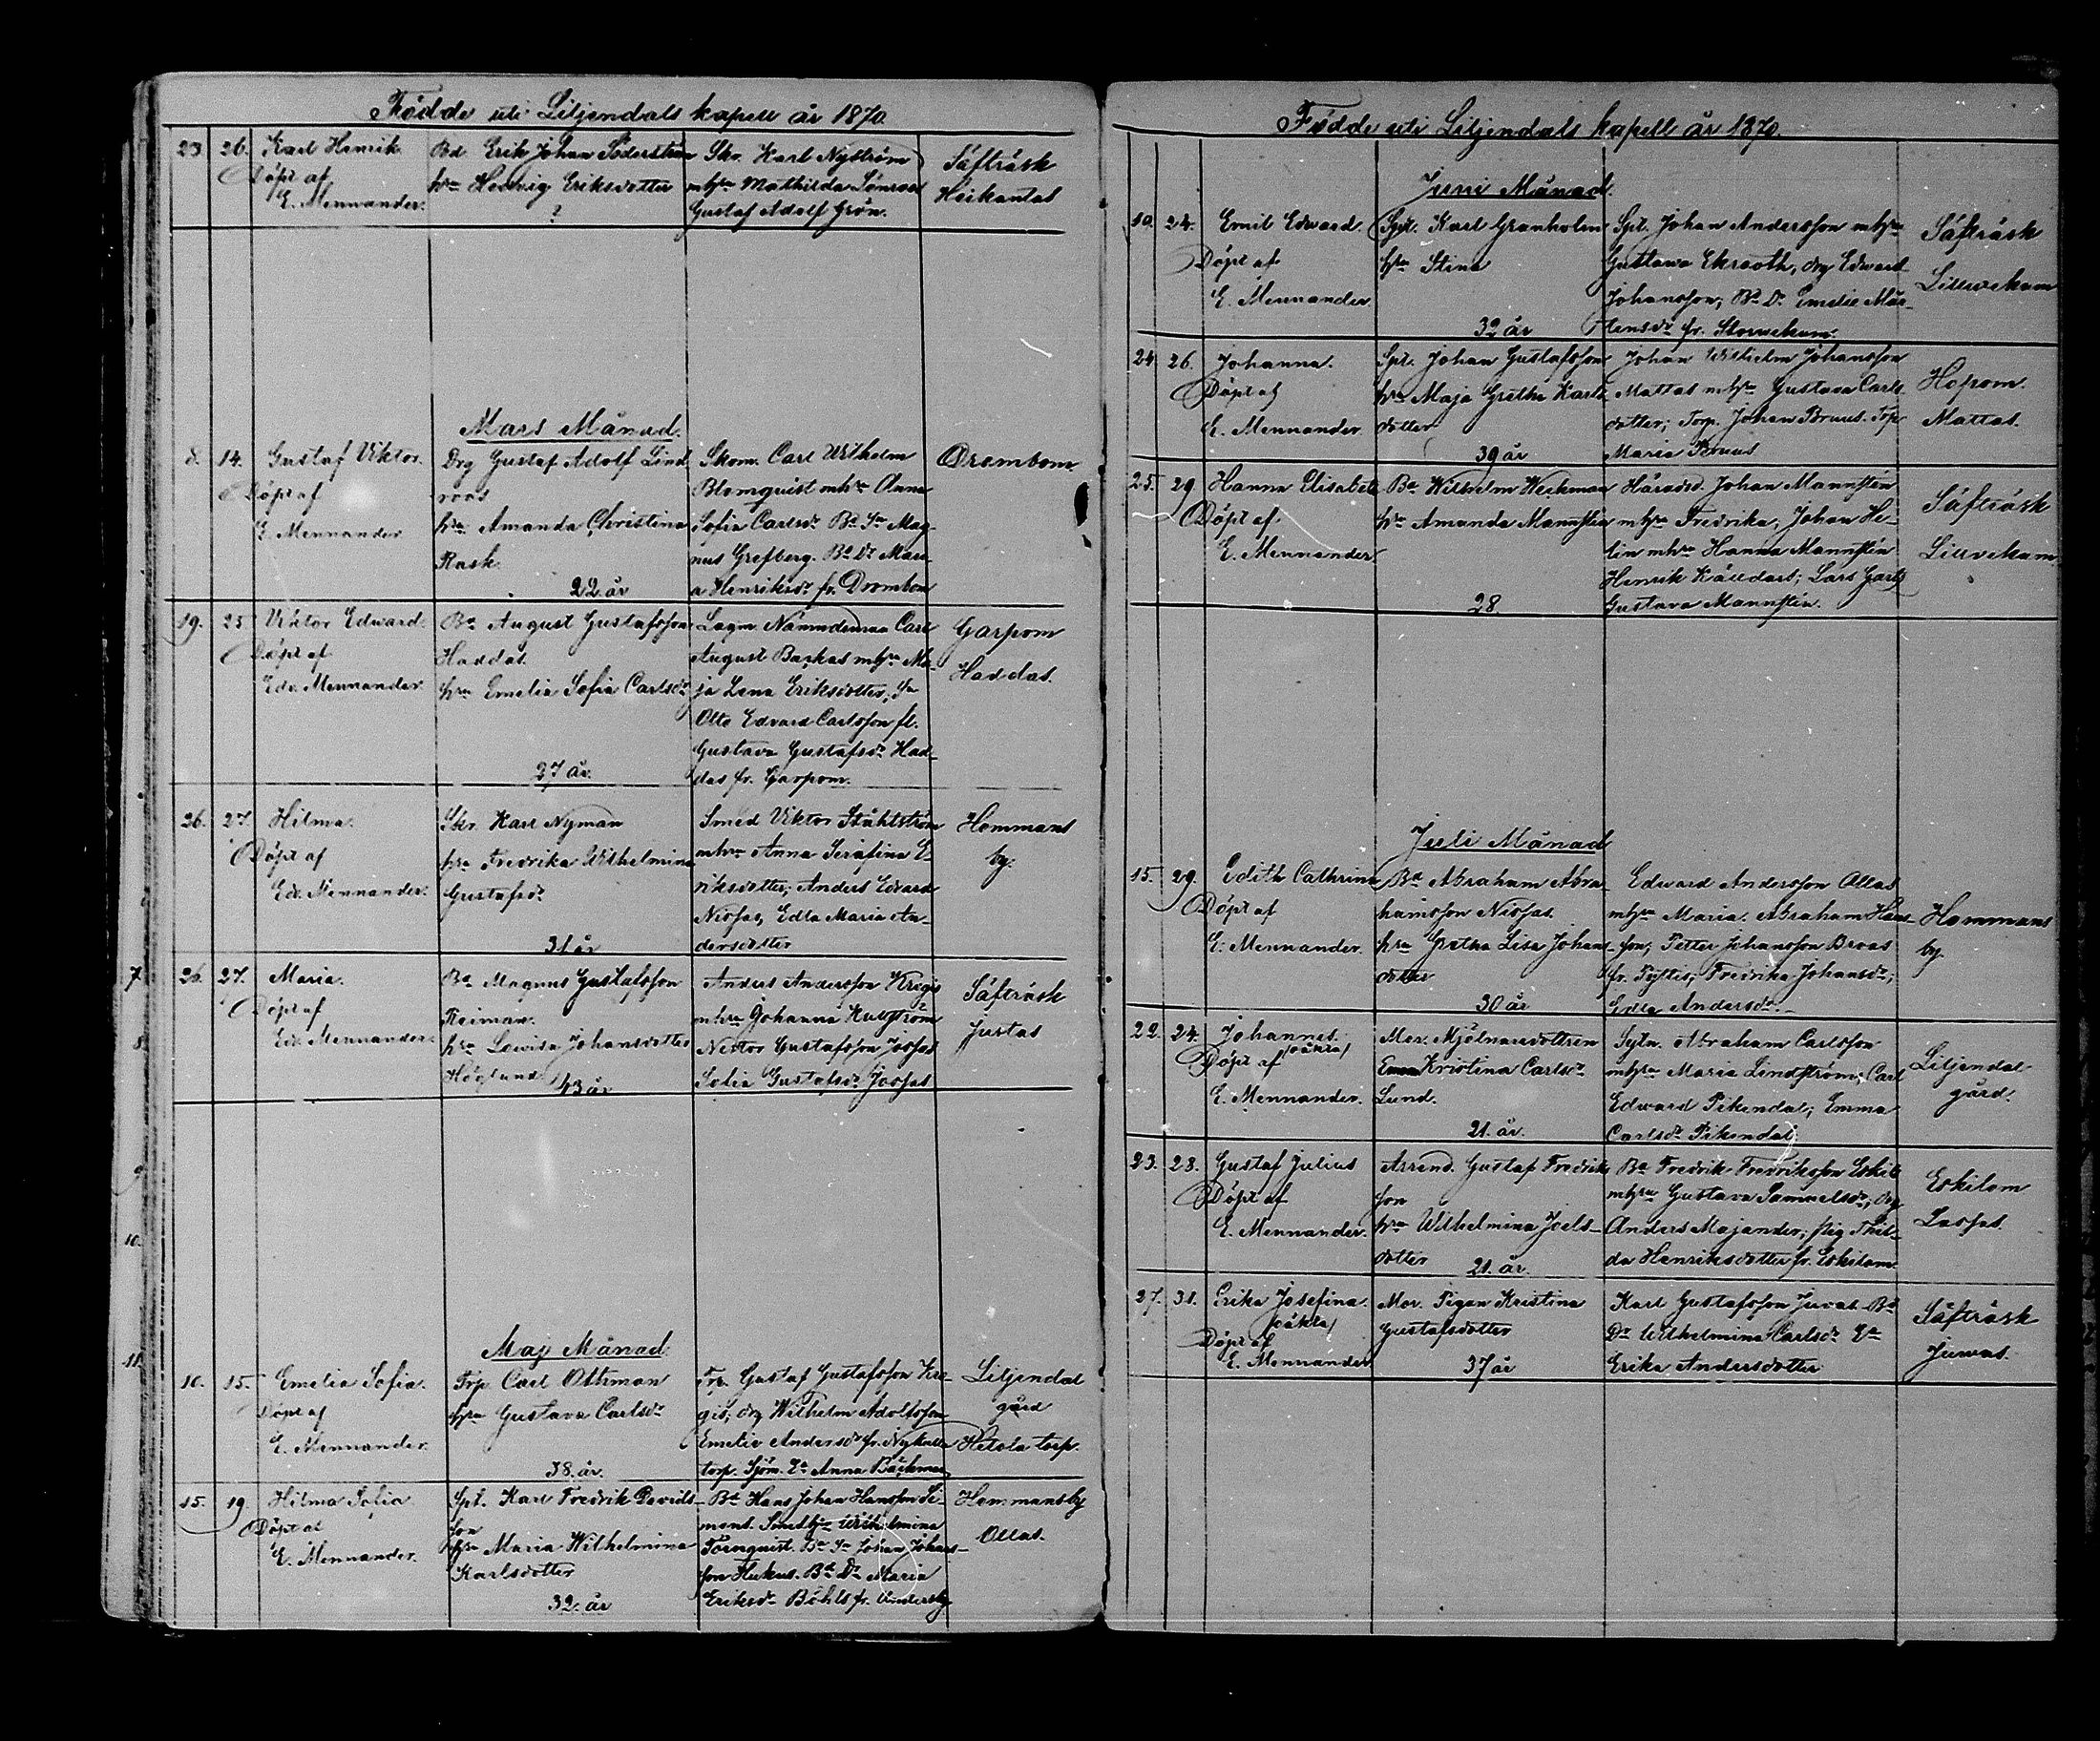 Födde uti Liljendals kapell år 1870.
23. 26. Karl Henrik.
Döpt af
E. Mennander.
Bd Erik Johan Söderström
hru Hedvig Eriksdotter
?
Skr. Karl Nyström
mhru Mathilda Lönroos
Gustaf Adolf Grön.
Säfträsk
Heikantas
Mars Månad.
8. 14. Gustaf Viktor.
Döpt af
E. Mennander
Drg Gustaf Adolf Lind
roos
hru Amanda Christina
Rask.
22 år
Skom. Carl Wilhelm
Blomquist mhru Anna
Sofia Carlsdr Bd Sn Mag-
nus Grefberg. Bd Dr Mari-
a Henriksdr fr. Drombom
Drombom
19. 25 Viktor Edward.
Döpt af
Edv. Mennander.
Bd August Gustafsson
Haddas.
hru Emelia Sofia Carlsdr
27 år.
Lagm. Nämndeman Carl
August Backas mhru Ma-
ja Lena Eriksdotter, Sn
Otto Edvard Carlsson fl.
Gustava Gustafsdr Had-
das fr. Garpom.
Garpom
Haddas.
26. 27. Hilma.
Döpt af
Ed. Mennander.
Skr. Karl Nyman
hru Fredrika Wilhelmina
Gustafsdr
31 år
Smed Viktor Ståhlström
mhru Anna Serafina E-
riksdotter, Anders Edvard
Nissas, Edla Maria An-
dersdotter
Hommans
by.
7.
26. 27. Maria.
Döpt af
Ed. Mennander.
Bd Magnus Gustafsson
Reiman.
hru Lovisa Johansdotter
Höglund 43 år
Anders Andersson Kregis
mhru Johanna
Nestor Gustafsson Josfas
Sofia Gustafsdr Josfas
Säfträsk
Justas
8
9
10.
11.
Maj Månad.
10. 15. Emelia Sofia.
Döpt af
E. Mennander.
Trp. Carl Othman
hru Gustava Carlsdr
38. år.
Trp. Gustaf Gustafsson Kre-
gis, drg Wilhelm Adolfsson
Emelie Andersdr fr. Nykulla
torp. Sjöm. Ea Anna Bäckman
Liljendal
gård
Hetola torp.
15. 19. Hilma Sofia
Döpt af
E. Mennander.
Spt. Karl Fredrik Davids-
son
hru Maria Wilhelmina
Karlsdotter
32. år
Bd Hans Johan Hansson Si-
mons. Smedhru Wilhelmina
Törnquist. Bd Sn Johan Johans-
son Hukus. Bd Dr Maria
Eriksdr Böhls fr. Andersby
Hommansby
Ollas.
Födde uti Liljendals kapell år 1870.
Juni Månad.
10. 24. Emil Edward.
Döpt af
E. Mennander.
Spt. Karl Granholm
hru Stina
32 år
Spt. Johan Andersson mhru
Gustawa Ekrooth, drg Edward
Johansson; Bd Dr Emelie Mår-
tensdr fr. Storwekom.
Säfträsk
Lillwekom
24. 26. Johanna.
Döpt af
E. Mennander.
Spt. Johan Gustafsson
hru Maja Gretha Karls-
dotter
39 år
Johan Wilhelm Johansson
Mattas mhru Gustava Carls
dotter; Torp. Johan Tornus. Trp
Maria Tornus
Hopom.
Mattas.
25. 29 Hanna Elisabet
Döpt af
E. Mennander.
Bd Wilhelm Weckman
hru Amanda Mannstén
28.
Häradsd. Johan Mannstén
mhru Fredrika, Johan He-
lin mhru Hanna Mannstén
Henrik Källdars; Lars Gars
Gustava Mannstén.
Säfträsk
Lillvekom
Juli Månad
15. 29. Edith Cathrina
Döpt af
E. Mennander.
Bd Abraham Abra-
hamsson Nissas.
hru Gretha Lisa Johans-
dotter
30 år
Edward Andersson Ollas
mhru Maria. Abraham Hans-
son; Petter Johansson Broas
fr. Tyftis; Fredrika Johansdr;
Edla Andersdr.
Hommans
by.
22. 24. Johannes.
Döpt af /oäkta/
E. Mennander.
Mor. Mjölnarsdottren
Kristina Carlsdr
Lund.
21. år.
Sytn. Abraham Carlsson
mhru Maria Lindström; Carl
Edward Pikendal; Emma
Carlsdr Pikendal.
Liljendal
gård.
23. 28. Gustaf Julius
Döpt af
E. Mennander.
Arrend. Gustaf Fredriks
son
hru Wilhelmina Joels-
dotter
21. år.
Bd Fredrik Fredriksson Eskils
mhru Gustava Samuelsdr, drg
Anders Majander; pig Thil-
da Henriksdotter fr. Eskilom
Eskilom
Lassas.
27. 31. Erika Josefina.
/oäkta/
Döpt af
E. Mennander
Mor. Pigan Kristina
Gustafsdotter
37 år
Karl Gustafsson Juvas. Bd
Dr Wilhelmina Carlsdr Ea
Erika Andersdotter
Säfträsk
Juwas.